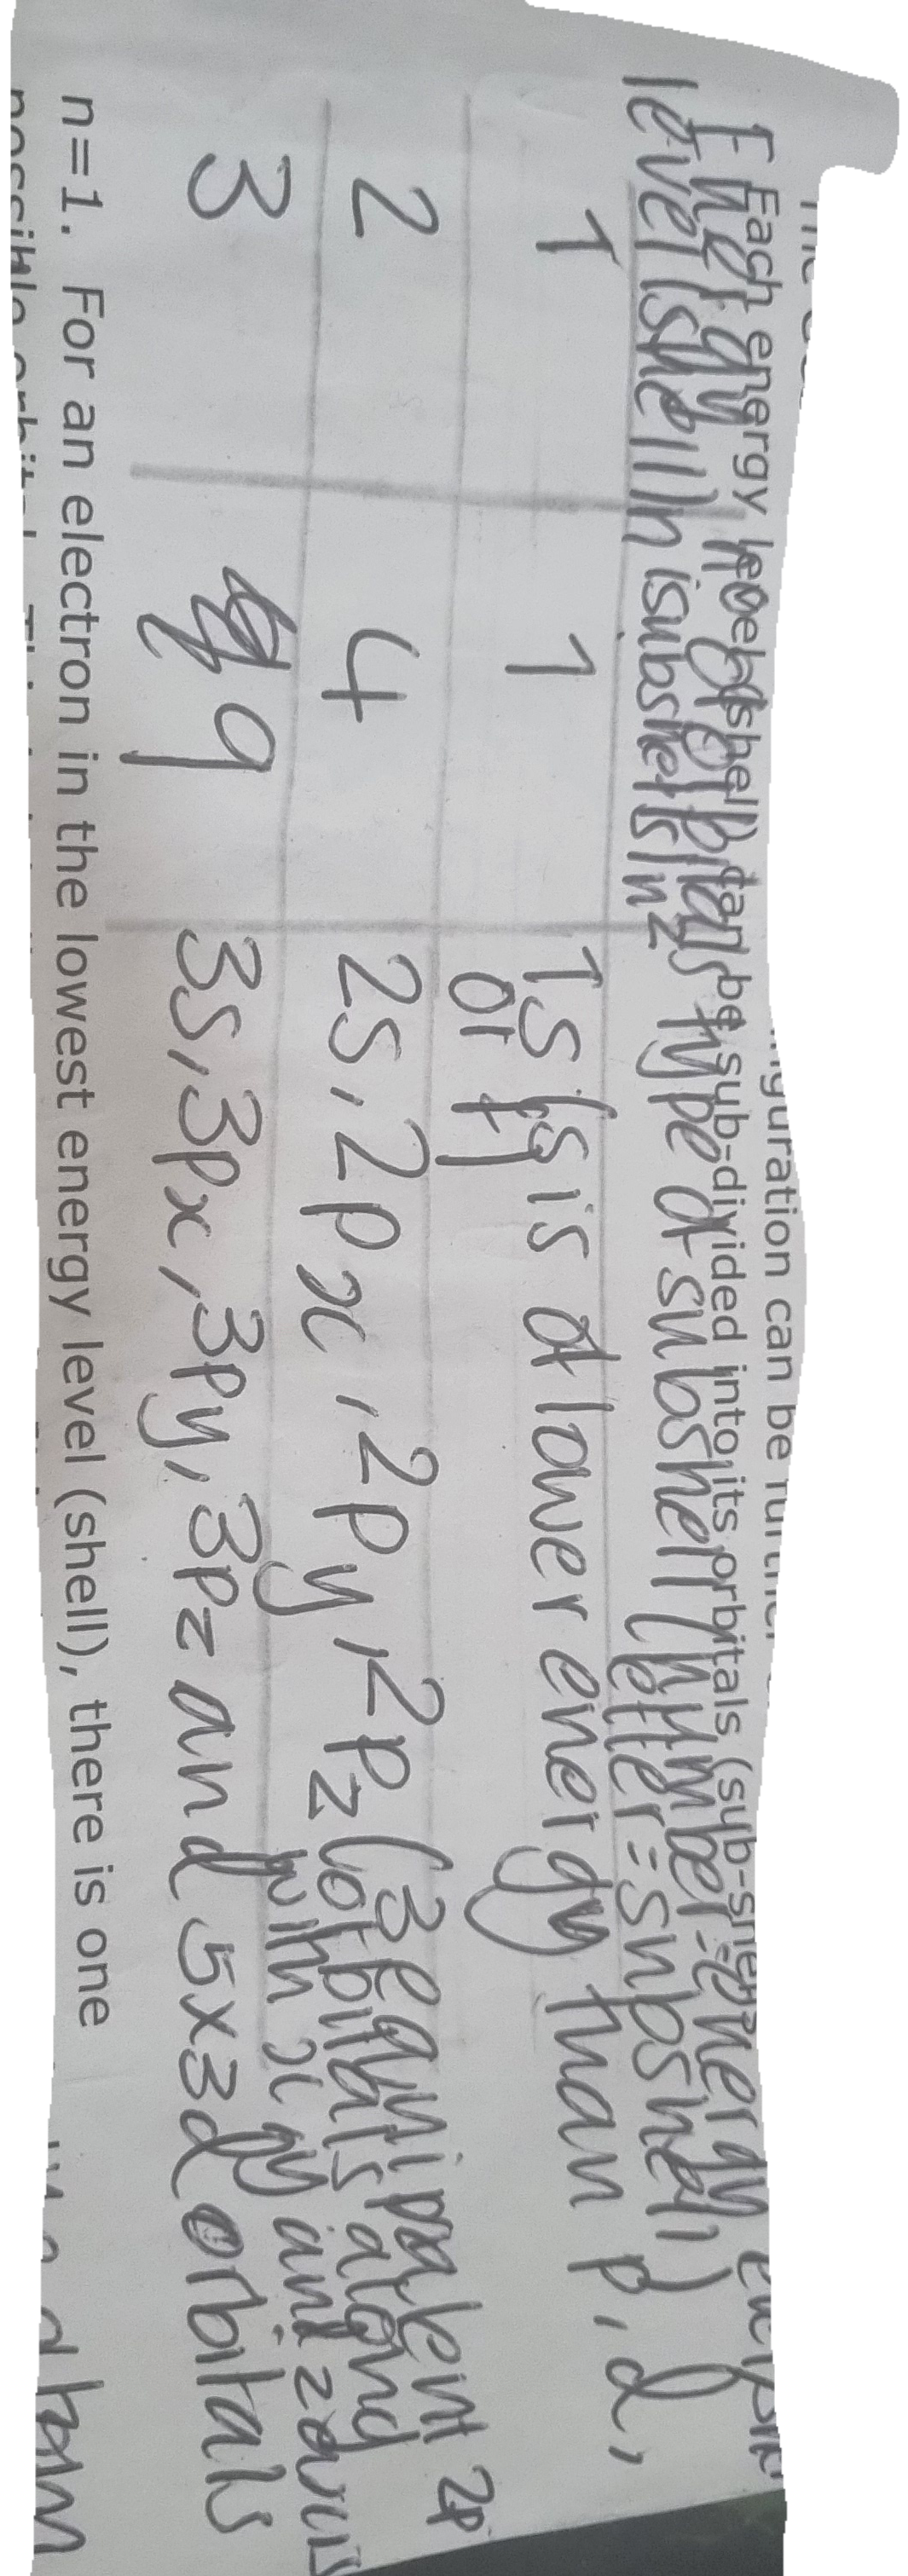 guration can be further
Each energy level (shell) can be sub-divided into its orbitals (sub-shell
Energy no of orbitals type of subshell (number = energy
level (shell) n (subshells) n² letter = subshell)
1 1 1s (s is a lower energy than p, d,
or f)
2 4 2s, 2px, 2py, 2pz (3 equivalent 2p
orbitals along
with x y and z axis
3 9 3s, 3px, 3py, 3pz and 5x3d orbitals
n=1. For an electron in the lowest energy level (shell), there is one